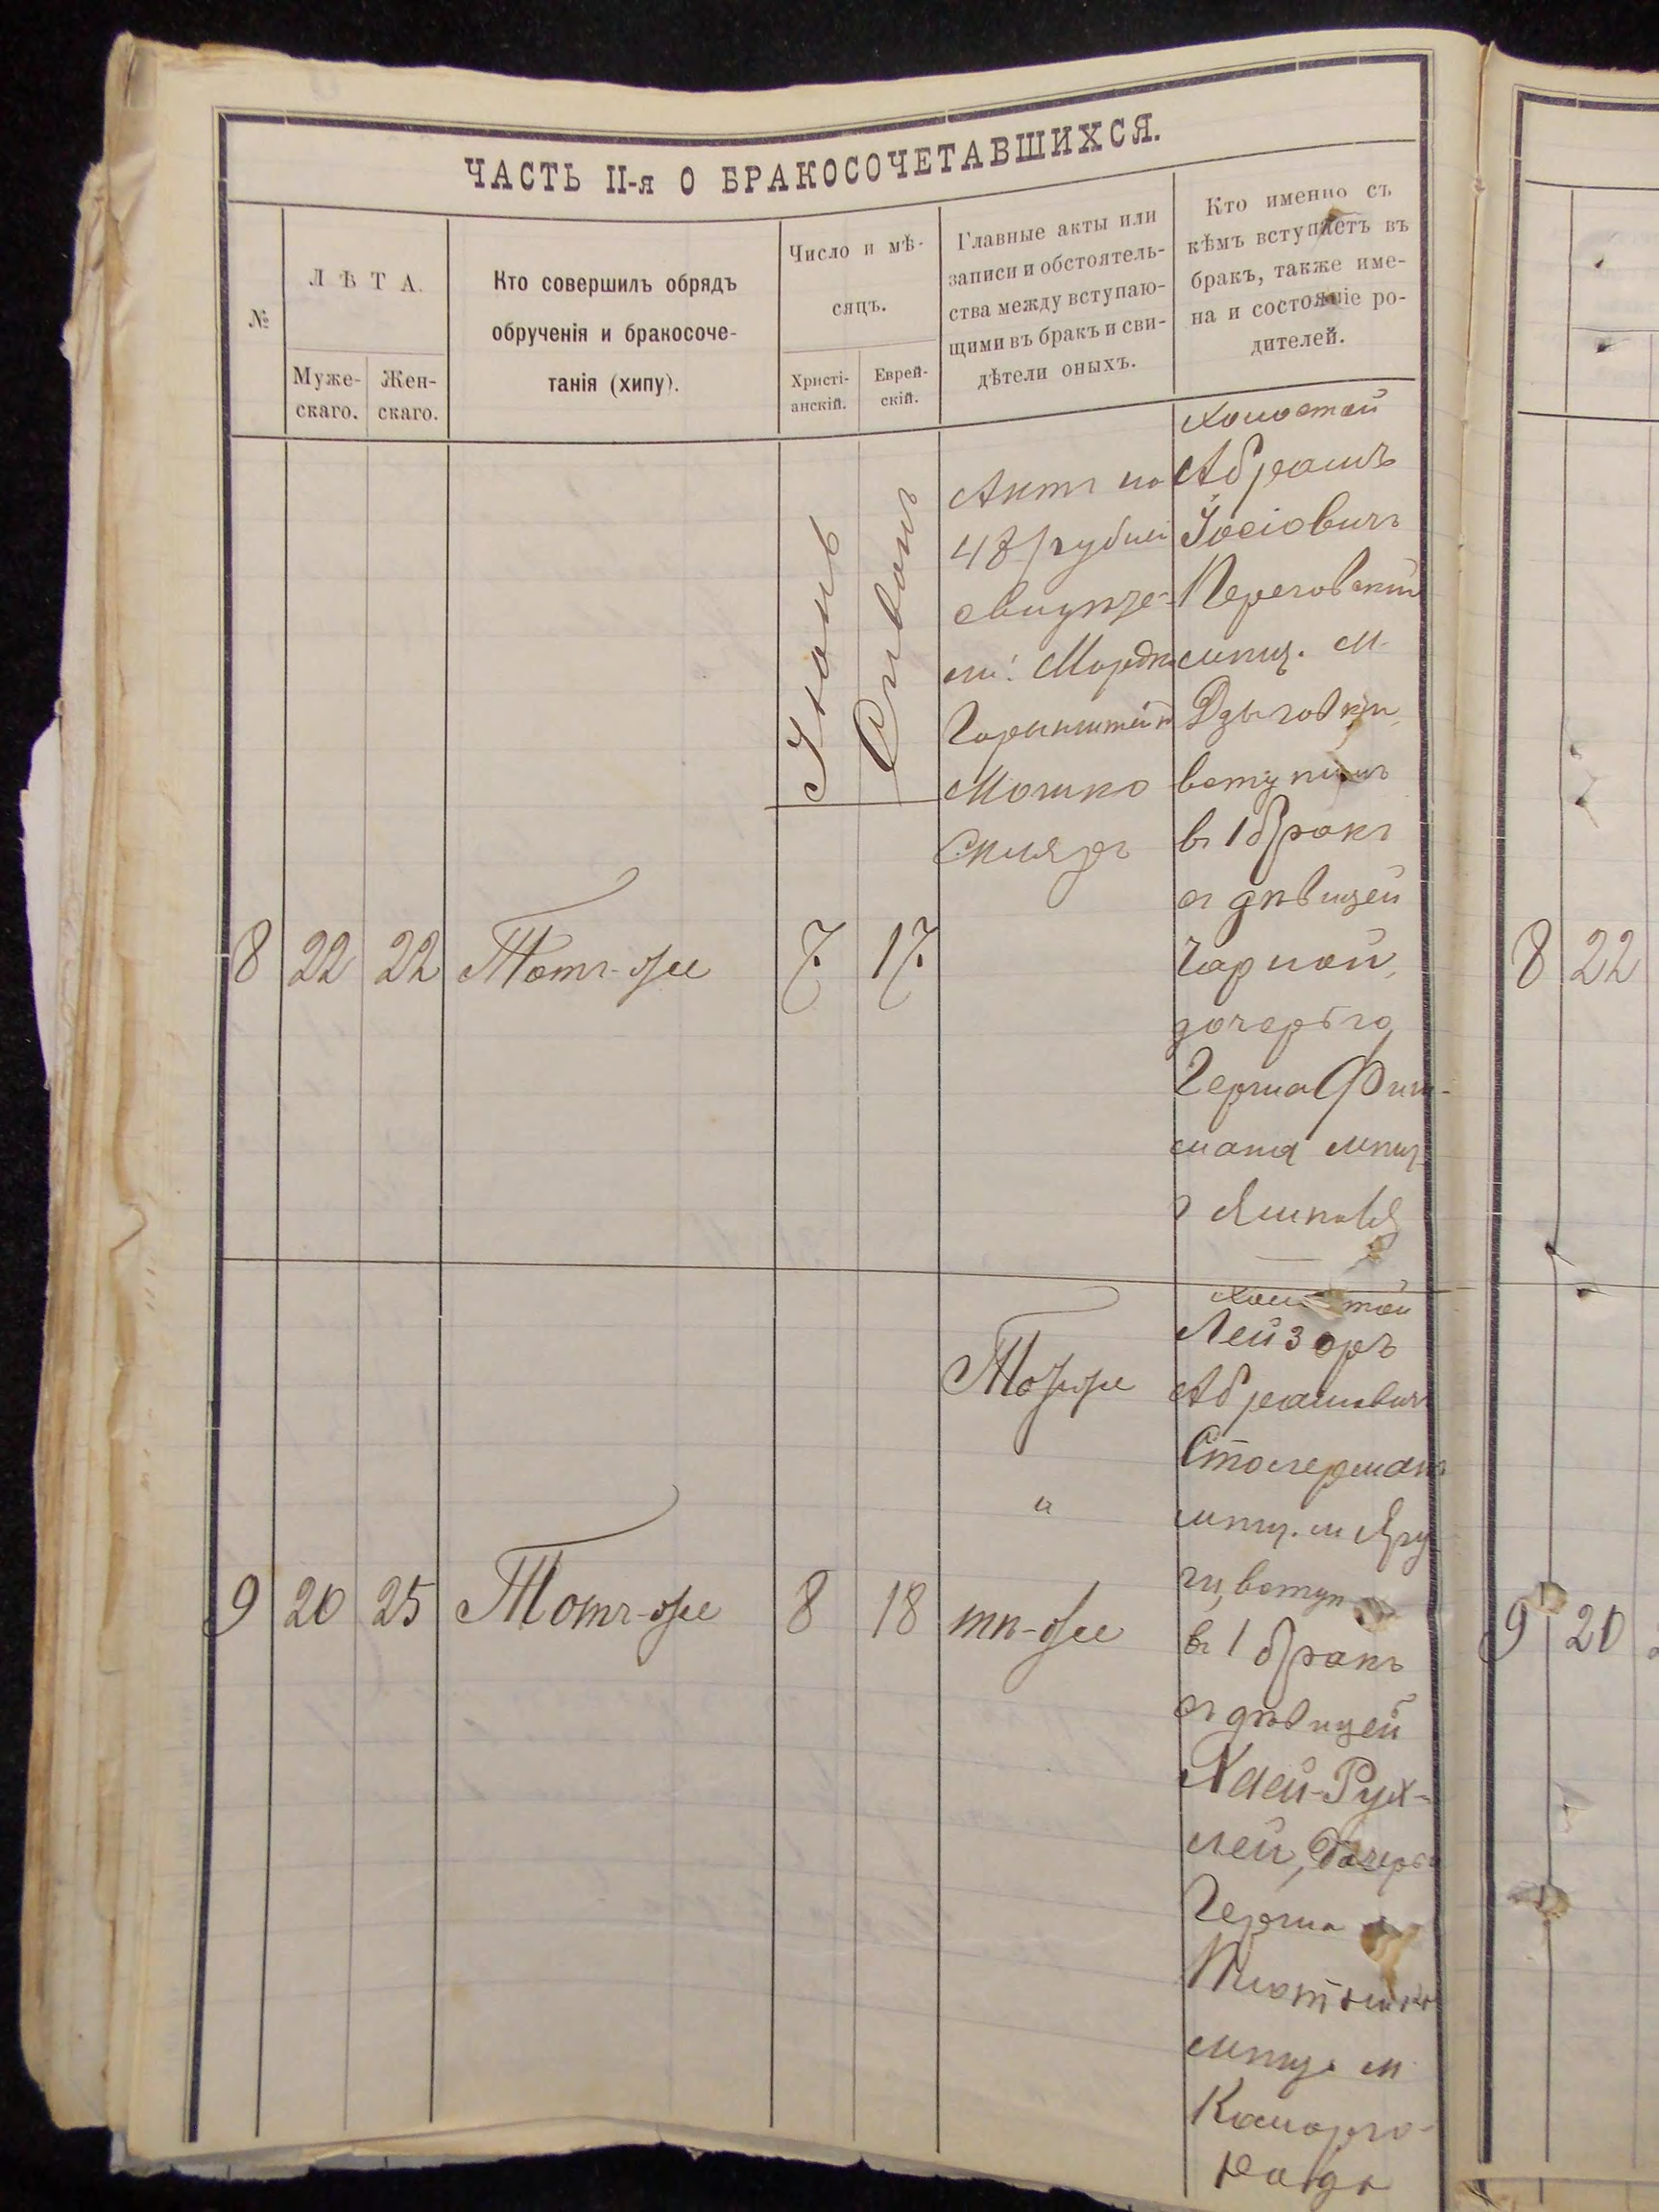 ЧАСТЬ II-я О БРАКОСОЧЕТАВШИХСЯ.
№
ЛѢТА.
Муже-
скаго.
Жен-
скаго.
Кто совершилъ обрядъ
обрученія и бракосоче-
танія (хипу).
Число и мѣ-
сяцъ.
Христі-
анскій.
Еврей-
скій.
Главные акты или
записи и обстоятель-
ства между вступаю-
щими въ бракъ и сви-
дѣтели оныхъ.
Кто именно съ
кѣмъ вступаетъ въ
бракъ, также име-
на и состояніе ро-
дителей.
8
22
22
Тотъ-же
Іюнь
7
Сиванъ
17
Актъ на
48 рублей
свидѣте-
ли: Мордко
Горенштейн
Мошко
Скляръ
холостой
Абрамъ
Іосіовичъ
Переговский
мѣщ. м.
Дзыговки,
вступилъ
въ 1 бракъ
съ дѣвицей
Чарной,
дочерью
Герша Фиш-
мана мѣщ.
г Ямполя
9
20
25
Тотъ-же
8
18
Тоже
и
тѣ-же
холостой
Лейзоръ
Абрамовичъ
Столерманъ
мѣщ. м Яру
ги, вступ
въ 1 бракъ
съ дѣвицей
Хаей-Рух-
лей, дочерью
Герша
мѣщ. м
Комарго-
рода